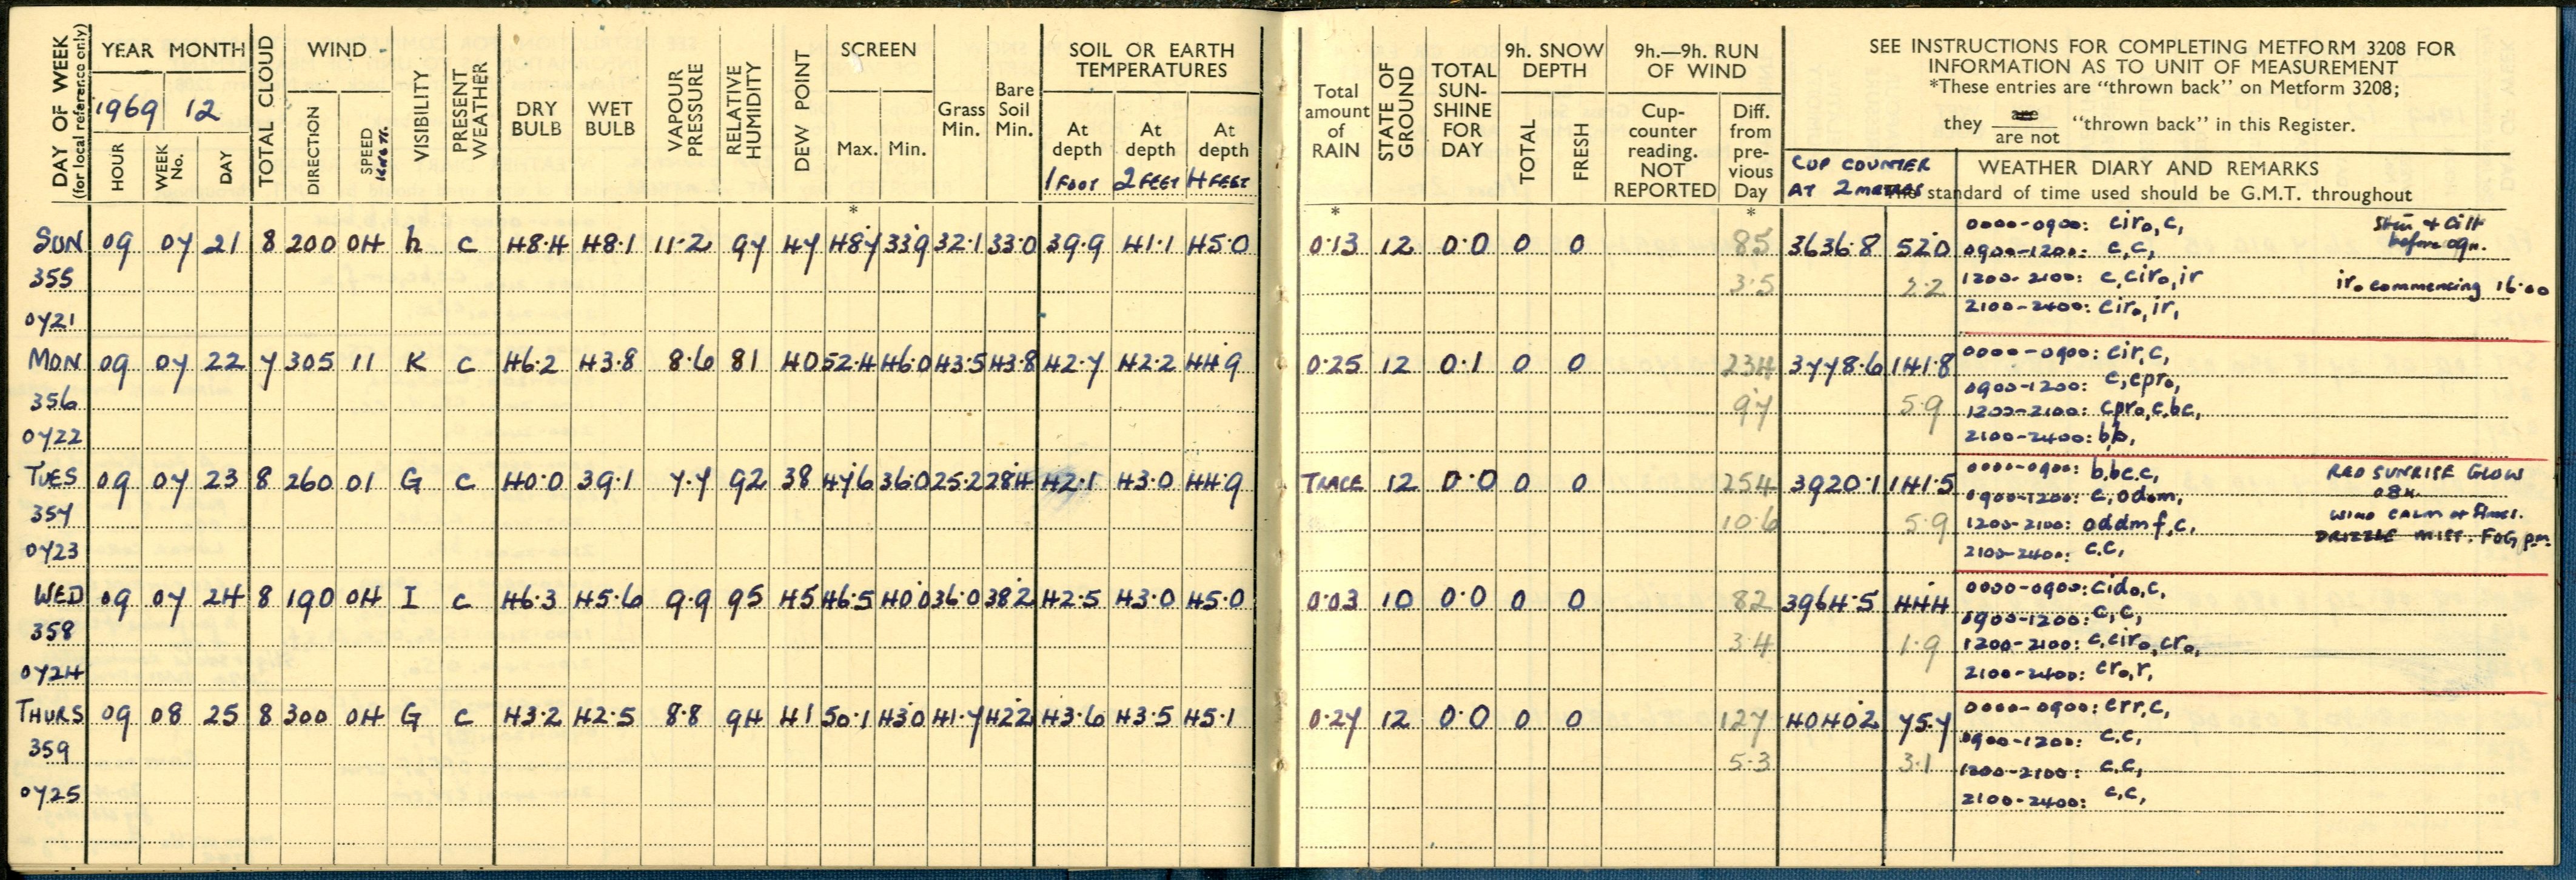 DAY OF WEEK (for local reference only)
YEAR MONTH
1969 12
HOUR WEEK No. DAY
TOTAL CLOUD
WIND
DIRECTION SPEED KNOTS.
VISIBILITY
PRESENT WEATHER
DRY BULB
WET BULB
VAPOUR PRESSURE
RELATIVE HUMIDITY
DEW POINT
SCREEN
Max. Min.
Grass Min.
Bare Soil Min.
SOIL OR EARTH TEMPERATURES
At depth 1 FOOT
At depth 2 FEET
At depth 4 FEET
Total amount of RAIN
STATE OF GROUND
TOTAL SUN-SHINE FOR DAY
9h. SNOW DEPTH
TOTAL FRESH
9h.—9h. RUN OF WIND
Cup-counter reading. NOT REPORTED
Diff. from pre-vious Day
SEE INSTRUCTIONS FOR COMPLETING METFORM 3208 FOR
INFORMATION AS TO UNIT OF MEASUREMENT
*These entries are "thrown back" on Metform 3208;
they are / are not "thrown back" in this Register.
CUP COUNTER
AT 2 METRES
WEATHER DIARY AND REMARKS
The standard of time used should be G.M.T. throughout
* * *
SUN 09 07 21 8 200 04 h c 48.4 48.1 11.2 97 47 48.7 33.9 32.1 33.0 39.9 41.1 45.0 0.13 12 0.0 0 0 85 3636.8 52.0
355 3.5 2.2
0721
0000-0900: ciro,c,
0900-1200: c,c,
before 09h.
1200-2100: c,ciro,ir
iro commencing 16.00
2100-2400: ciro,ir,
MON 09 07 22 7 305 11 K c 46.2 43.8 8.6 81 40 52.4 46.0 43.5 43.8 42.7 42.2 44.9 0.25 12 0.1 0 0 234 3778.6 141.8
356 9.7 5.9
0722
0000-0900: cir,c,
0900-1200: c,cpro,
1200-2100: cpro,c,bc,
2100-2400: b,b,
TUES 09 07 23 8 260 01 G c 40.0 39.1 7.7 92 38 47.6 36.0 25.2 28.4 42.1 43.0 44.9 TRACE 12 0.0 0 0 254 3920.1 141.5
357 10.6 5.9
0723
0000-0900: b,bc.c,
RED SUNRISE GLOW
08h.
0900-1200: c,odom,
WIND CALM at times.
1200-2100: oddmf,c,
DRIZZLE MIST. FOG pm.
2100-2400: c.c,
WED 09 07 24 8 190 04 I c 46.3 45.6 9.9 95 45 46.5 40.0 36.0 38.2 42.5 43.0 45.0 0.03 10 0.0 0 0 82 3964.5 44.4
358 3.4 1.9
0724
0000-0900: cido,c,
0900-1200: c,c,
1200-2100: c,ciro,cro,
2100-2400: cro,r,
THURS 09 08 25 8 300 04 G c 43.2 42.5 8.8 94 41 50.1 43.0 41.7 42.2 43.6 43.5 45.1 0.27 12 0.0 0 0 127 4040.2 75.7
359 5.3 3.1
0725
0000-0900: crr,c,
0900-1200: c.c,
1200-2100: c.c,
2100-2400: c,c,